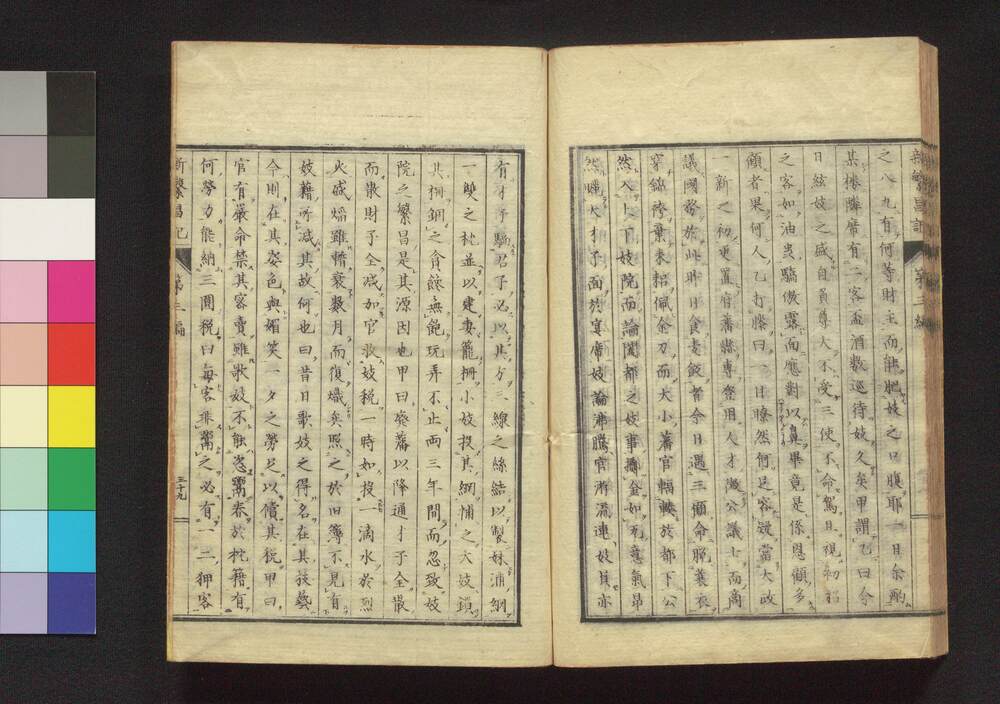 新繁昌記 第三編
之八九有何等財主而能肥妓之口腹耶一日余酌
某樓隣席有二客盃酒數巡待妓久矣甲謂乙曰今
日絃妓之盛自負尊大不受三使不命駕且視初招
之客如油虫驕傲露面應對以鼻畢竟是係恩顧多
顧者果何人乙打膝曰一目瞭然何足容疑當大政
一新之初更置官藩縣專登用人才徴公議士而商
議國務於此昨日食麦飯者今日遇三顧命脱蓑衣
穿錦袴棄耒耜佩金刀而大小藩官輻輳於都下公
然入上下妓院而論闔都之妓事擲金如瓦意氣昂
然嘩大才子面於宴席妓論沸騰官府流連妓員亦
有才子騙君子必以其方三線之絲結以製妹浦網
一雙之枕並以建妻籠柵小妓投其網浦之大妓鎖
其柵錮之貪饕無飽玩弄不止両三年間而忽致妓
院之繁昌是其源因也甲曰癈藩以降通才子全散
而散財子全減加官收妓税一時如投一滴水於烈
火威焔雖稍衰數月而復熾矣照之於旧簿不見有
妓籍所減其故何也曰昔日歌妓之得名在其技藝
今則在其姿色與媚笑一夕之勞足以償其税甲曰
官有嚴命禁其密賣雖歌妓不能恣鬻春於枕籍有
何勞力能納三圓税曰毎客乖鬻之必有一二狎客
新繁昌記 第三編
三十九